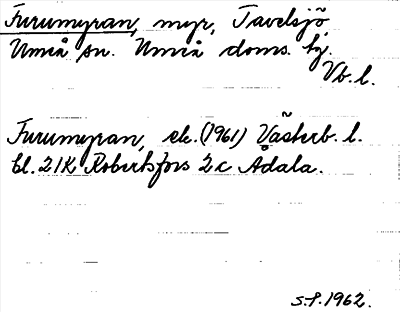 Furumyran, myr, Tavelsjö,
Umeå sn. Umeå doms. hg.
Vb. l.
Furumyran, ek. (1961) Västerb. l.
bl. 21K Robertsfors 2c Adala.
S.P. 1962.